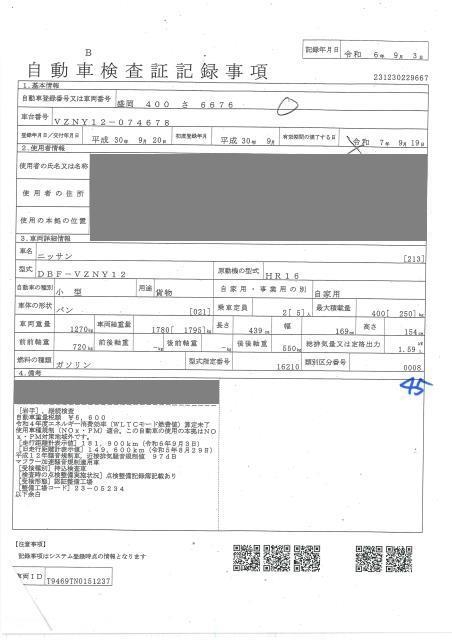 B
記録年月日 令和 6年 9月 3日
自動車検査証記録事項
231230229667
1.基本情報
自動車登録番号又は車両番号 盛岡 400 さ 6676
車台番号 VZNY12-074678
登録年月日/交付年月日 平成 30年 9月 20日 初度登録年月 平成 30年 9月 有効期間の満了する日 令和 7年 9月 19日
2.使用者情報
使用者の氏名又は名称
使用者の住所
使用の本拠の位置
3.車両詳細情報
車名 ニッサン [213]
型式 DBF-VZNY12 原動機の型式 HR16
自動車の種別 小型 用途 貨物 自家用・事業用の別 自家用
車体の形状 バン [021] 乗車定員 2[ 5]人 最大積載量 400[ 250]kg
車両重量 1270kg 車両総重量 1780[ 1795]kg 長さ 439cm 幅 169cm 高さ 154cm
前前軸重 720kg 前後軸重 -kg 後前軸重 -kg 後後軸重 550kg 総排気量又は定格出力 1.59
燃料の種類 ガソリン 型式指定番号 16210 類別区分番号 0008
4.備考
45
[岩手],継続検査
自動車重量税額 ¥6,600
令和4年度エネルギー消費効率(WLTCモード燃費値)算定未了
使用車種規制(NOx・PM)適合、この自動車の使用の本拠はNO
x・PM対策地域外です。
[走行距離計表示値]181,900km(令和6年9月3日)
[旧走行距離計表示値]149,600km(令和5年8月29日)
平成12年騒音規制車、近接排気騒音規制値 97dB
マフラー加速騒音規制適用車
[受検種別]持込検査車
[検査時の点検整備実施状況]点検整備記録簿記載あり
[受検形態]認証整備工場
[整備工場コード]23-05234
以下余白
【注意事項】
記録事項はシステム登録時点の情報となります
車両ID T9469TN0151237